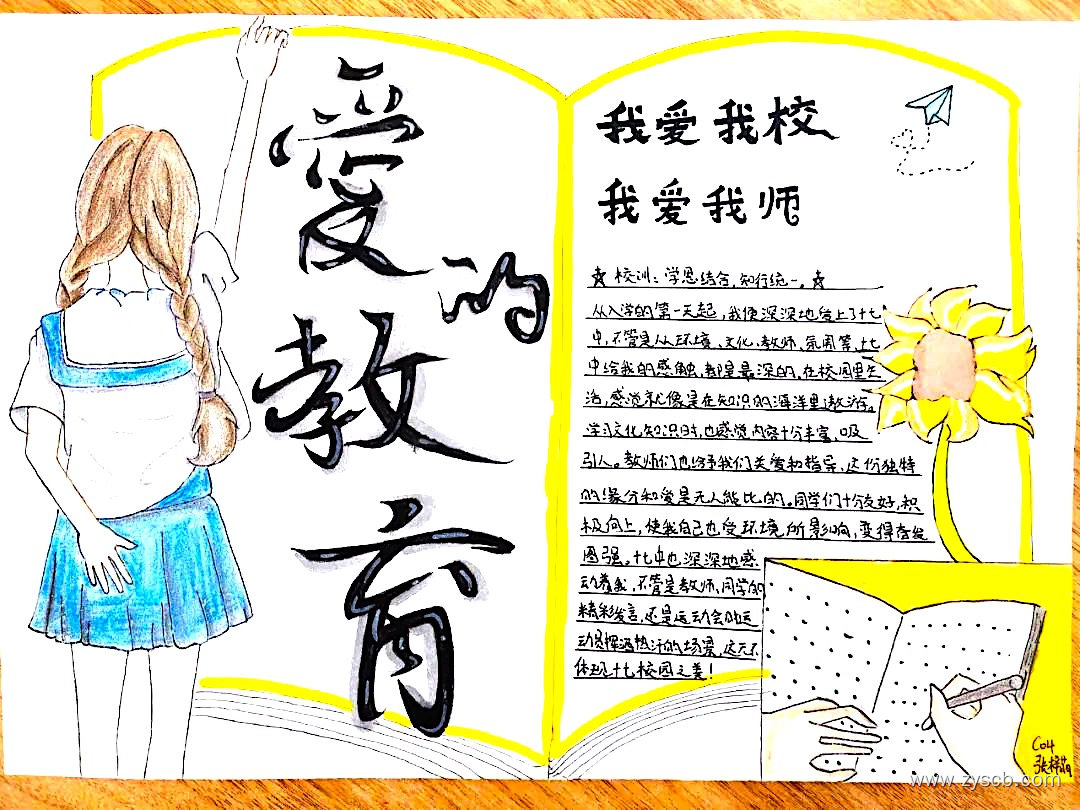 爱
的
教
育
我爱我校
我爱我师
☆校训：学思结合，知行统一。☆
从入学的第一天起，我便深深地爱上了十七
中，不管是从环境、文化、教师、氛围等，十七
中给我的感触，都是最深的。在校园里生
活，感觉就像是在知识的海洋里遨游。
学习文化知识时，也感觉内容十分丰富，吸
引人。教师们也给予我们关爱和指导，这份独特
的缘分和爱是无人能比的。同学们十分友好，积
极向上，使我自己也受环境所影响，变得奋发
图强。十七中也深深地感
动着我，不管是教师、同学的
精彩发言，还是运动会的运
动员挥洒热汗的场景，这无不
体现十七校园之美！
C04
张梓
www.zyscb.com